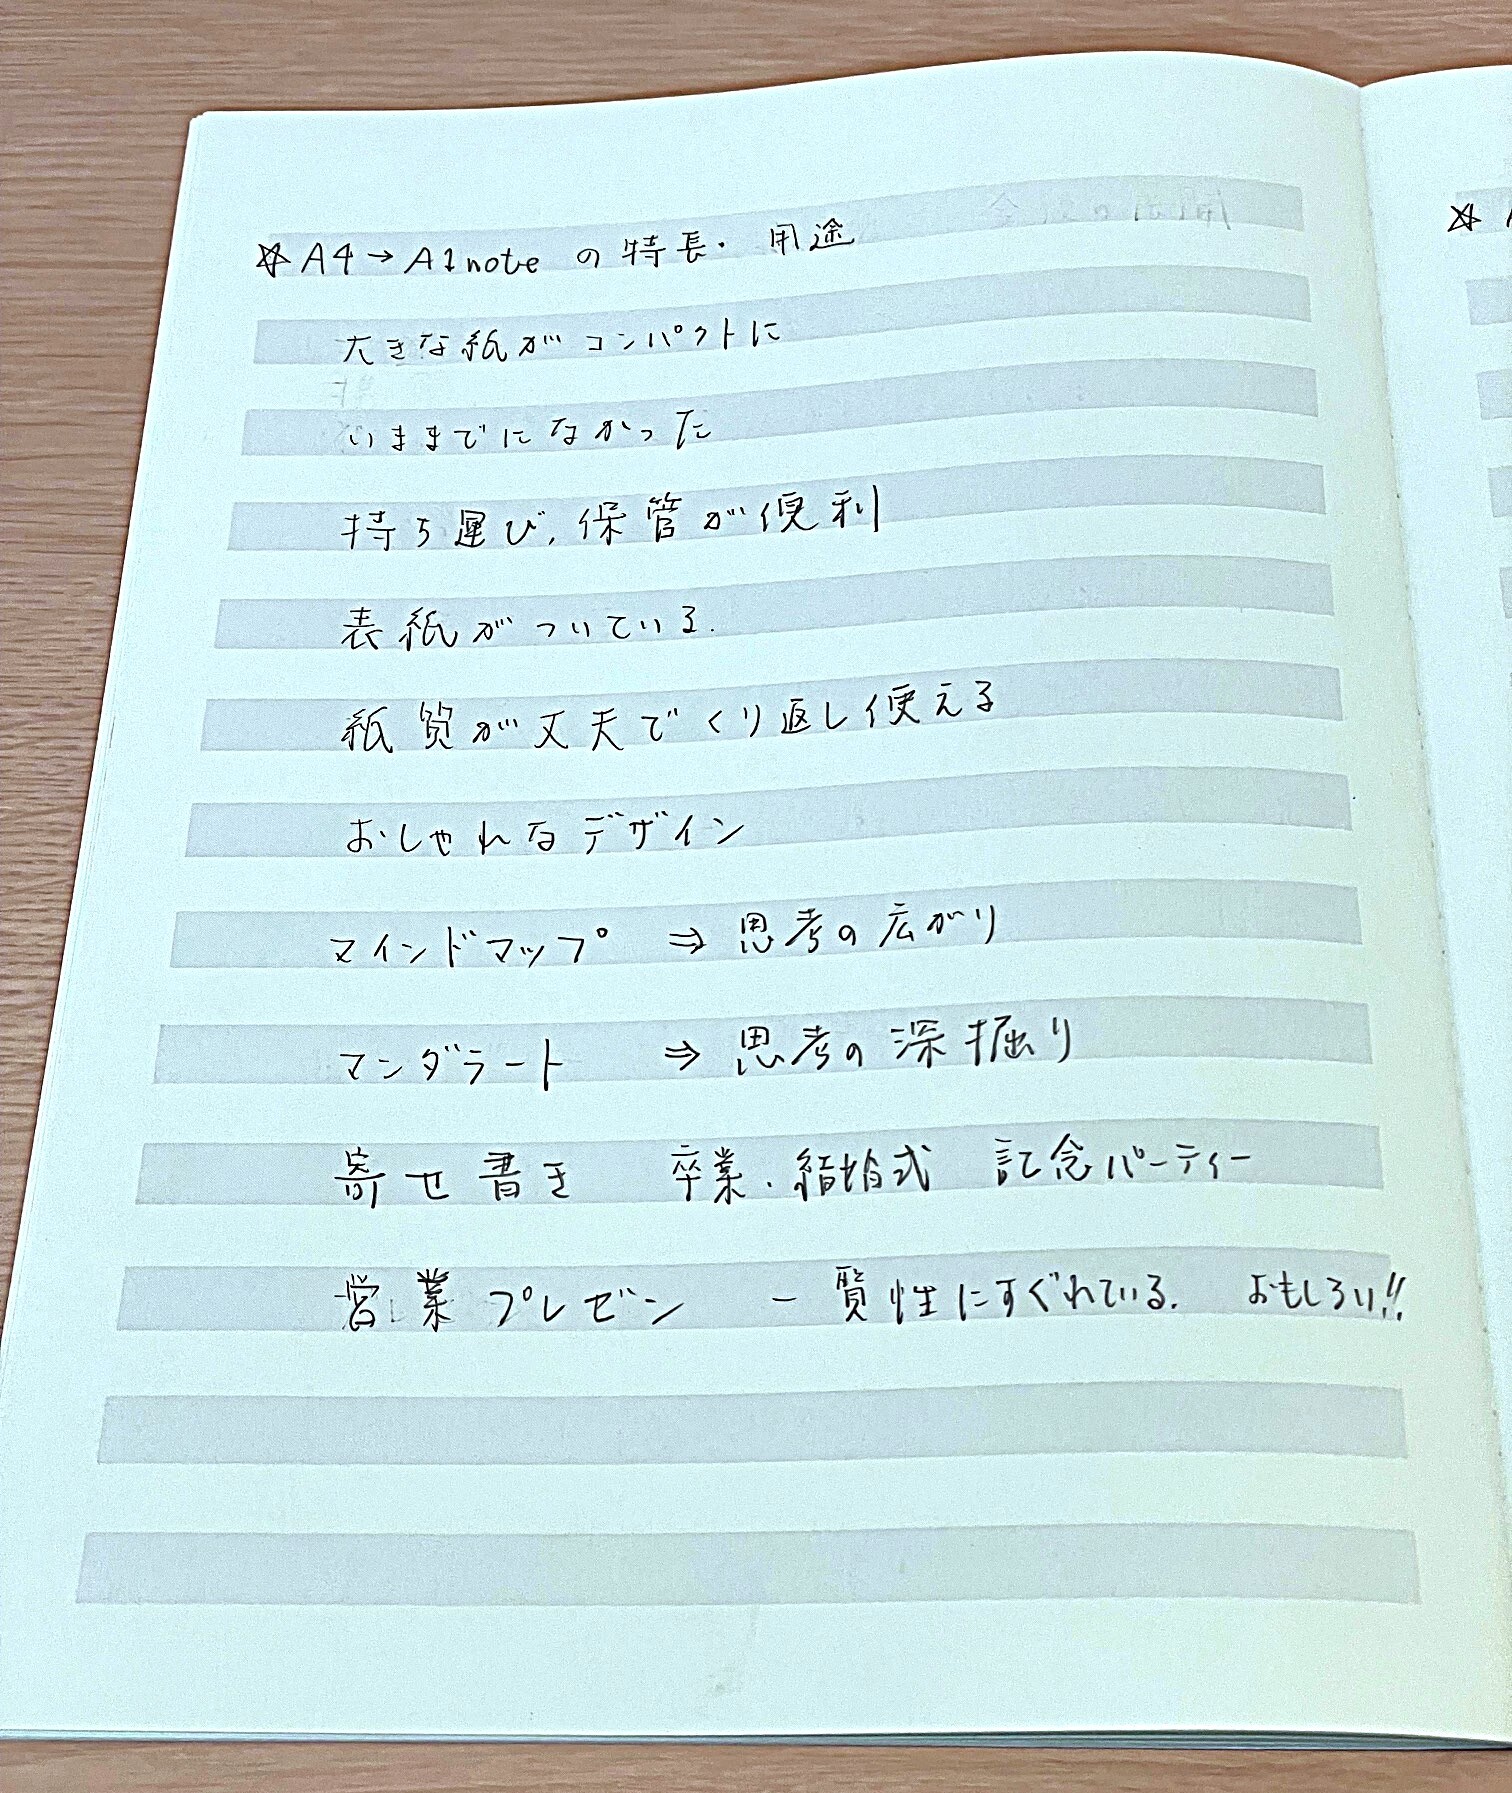 ☆A4→A1noteの特長・用途
大きな紙がコンパクトに
いままでになかった
持ち運び、保管が便利
表紙がついている.
紙質が丈夫でくり返し使える
おしゃれなデザイン
マインドマップ ⇒ 思考の広がり
マンダラート ⇒ 思考の深掘り
寄せ書き 卒業・結婚式 記念パーティー
営業プレゼン 一覧性にすぐれている. おもしろい!!
☆